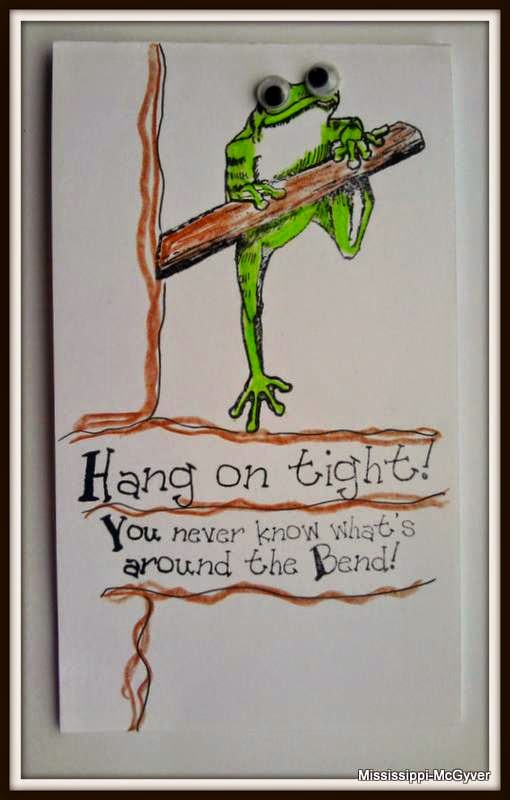 Hang on tight!
You never know what's
around the Bend!
Mississippi-McGyver